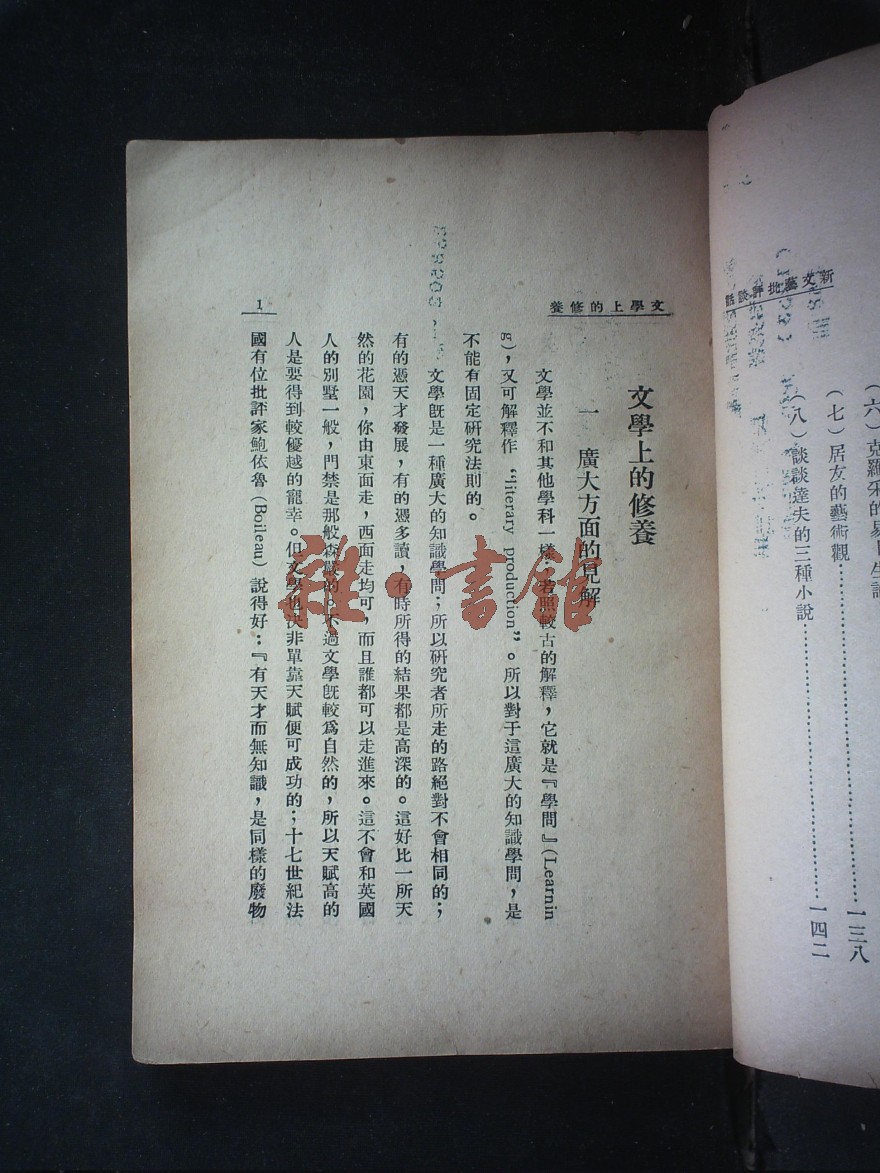 新文藝批評談話
(七)居友的藝術觀……一三八
(八)談談達夫的三種小說……一四二
文學上的修養
文學上的修養
一 廣大方面的見解
文學並不和其他學科一樣;若照較古的解釋,它就是『學問』(Learnin
g),又可解釋作 “literary production”。所以對于這廣大的知識學問,是
不能有固定研究法則的。
文學旣是一種廣大的知識學問;所以研究者所走的路絕對不會相同的;
有的憑天才發展,有的憑多讀,有時所得的結果都是高深的。這好比一所天
然的花園,你由東面走,西面走均可,而且誰都可以走進來。這不會和英國
人的別墅一般,門禁是那般森嚴的。不過文學旣較爲自然的,所以天賦高的
人是要得到較優越的寵幸。但文學也決非單靠天賦便可成功的;十七世紀法
國有位批評家鮑依魯(Boileau)說得好:『有天才而無知識,是同樣的廢物
1
雜·書館